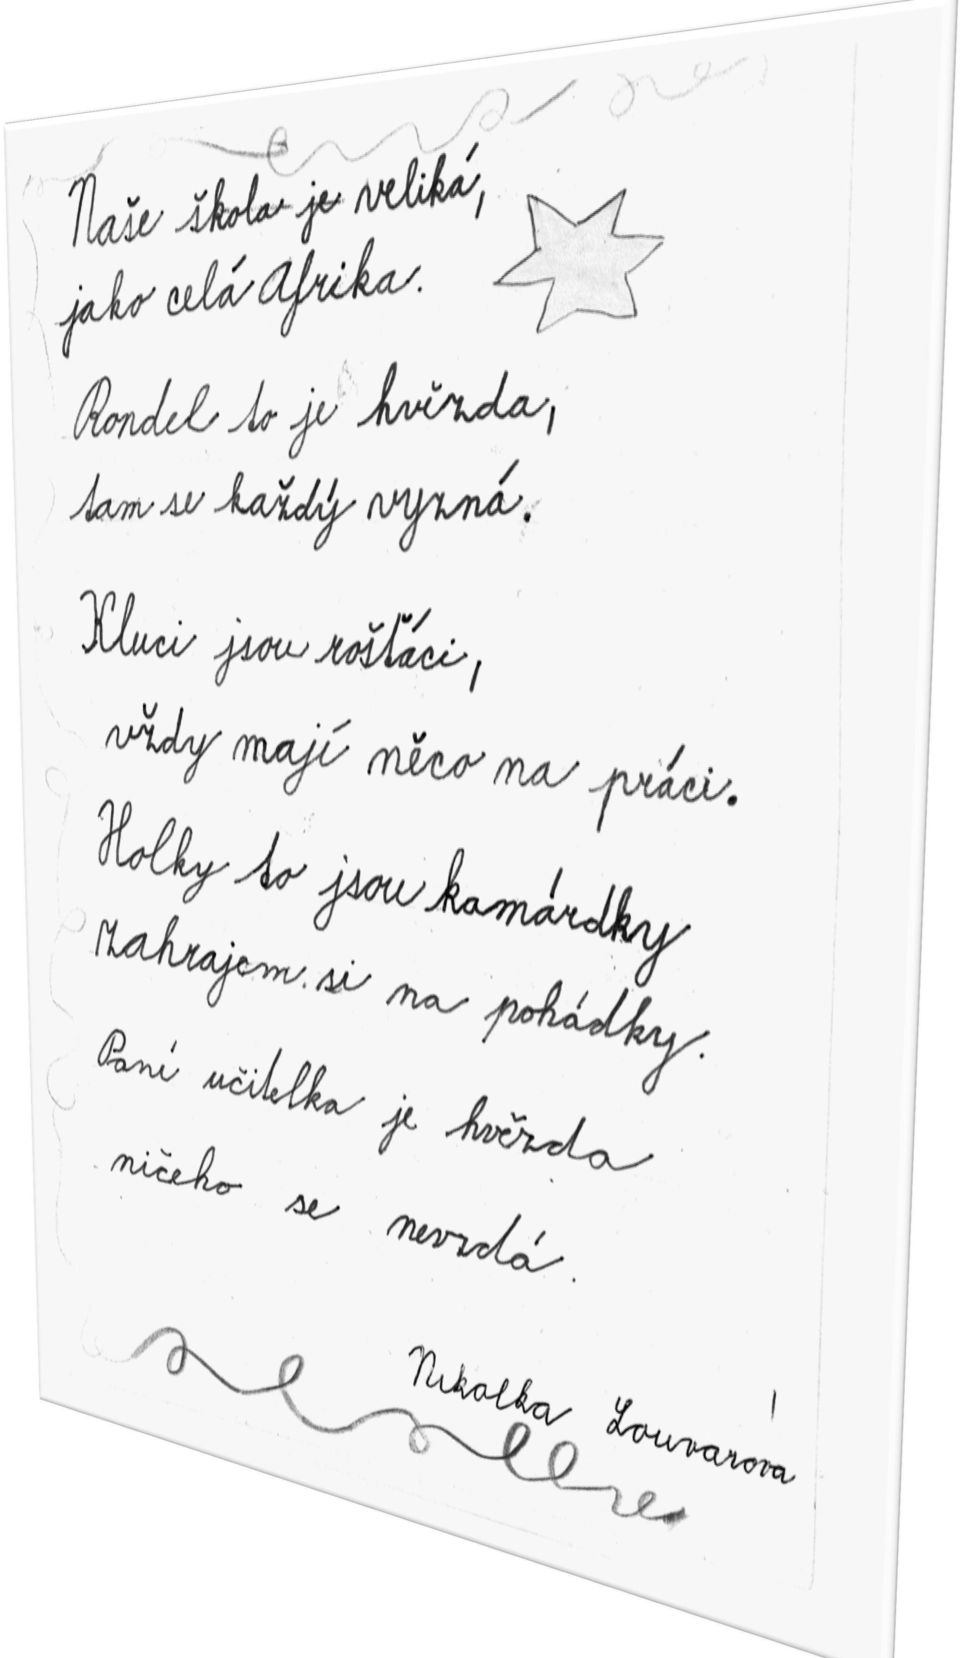 Naše škola je veliká,
jako celá Afrika.
Rondel to je hvězda,
tam se každý vyzná.
Kluci jsou rošťáci,
vždy mají něco na práci.
Holky to jsou kamárdky
zahrajem si na pohádky.
Paní učitelka je hvězda
ničeho se nevzdá.
Nikolka Louvarová